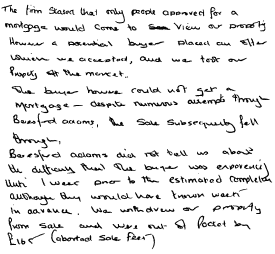 The firm stated that only people approved for a
mortgage would come to view our property
However a potential buyer placed an offer
which we accepted, and we took our
Property off the market.
The buyer however could not get a
Mortgage – despite numerous attempts through
Beresford adams, the sale subsequently fell
through,
Beresford adams did not tell us about
the difficulty that the buyer was experiencing
Until 1 week prior to the estimated completion
although they would have known weeks
in advance. We withdrew our property
from sale and were out of Pocket by
£165 (abortact sale fees)